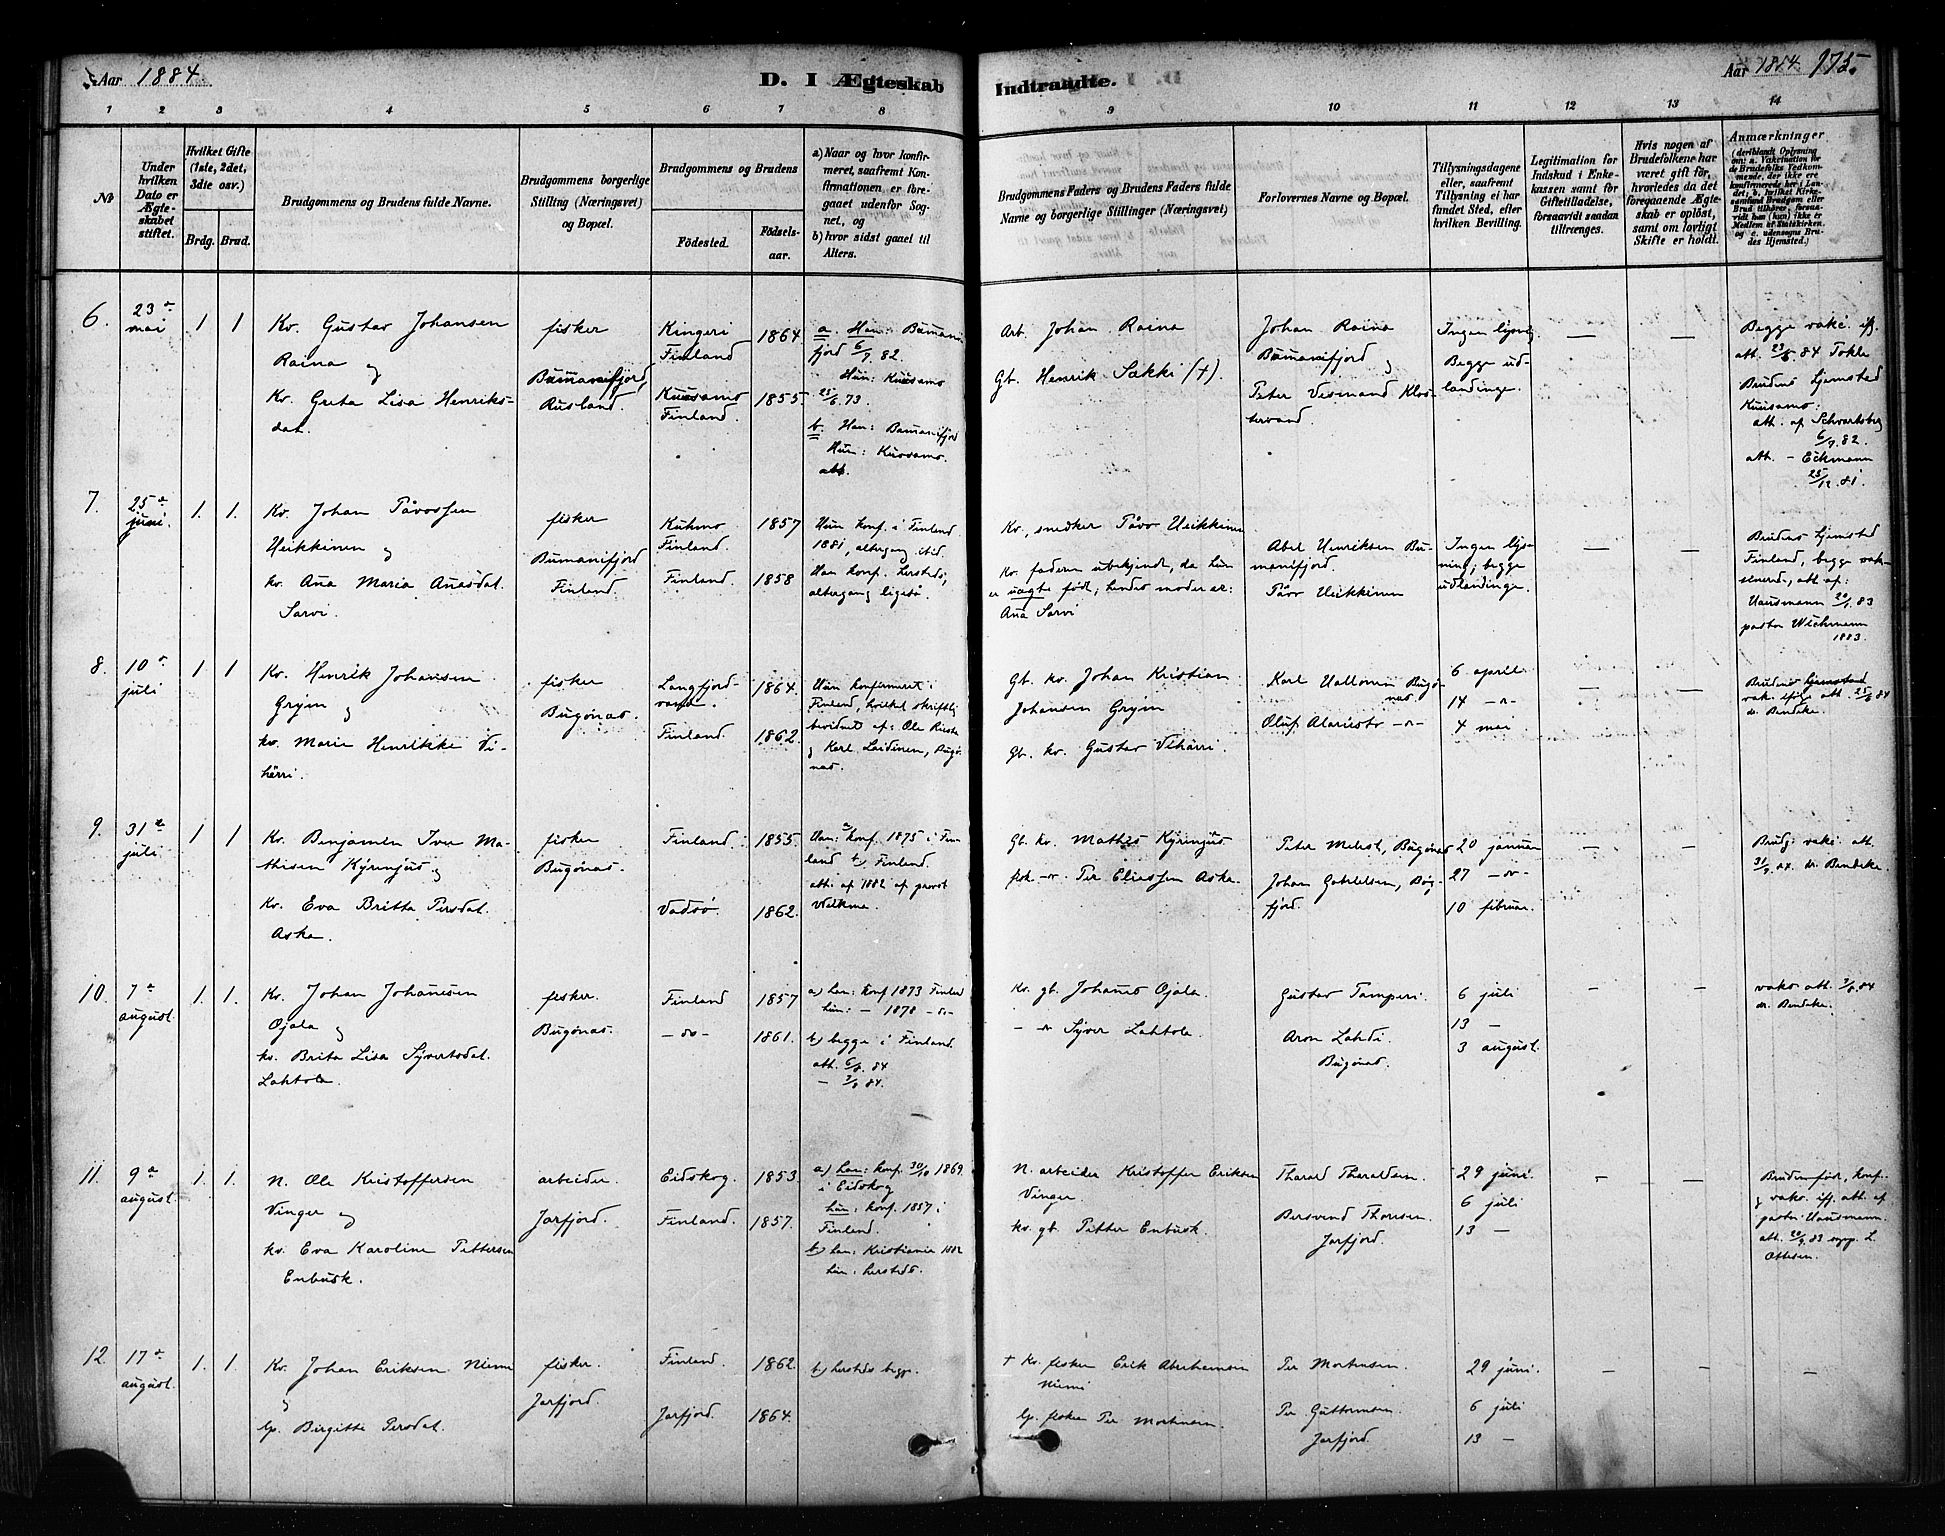 Aar 1884.
D. I Ægteskab
Indtraadte.
Aar 1884. 175.
1 2 3 4 5 6 7 8
9 10 11 12 13 14
№
Under hvilken Dato er Ægteskabet stiftet.
Hvilket Gifte (1ste, 2det, 3die osv.)
Brdg. Brud.
Brudgommens og Brudens fulde Navne.
Brudgommens borgerlige Stilling (Næringsvei) og Bopæl.
Brudgommens og Brudens
Födested.
Födsels-aar.
a) Naar og hvor konfirmeret, saafremt Konfirmationen er foregaaet udenfor Sognet, og
b) hvor sidst gaaet til Alters.
Brudgommens Faders og Brudens Faders fulde Navne og borgerlige Stillinger (Næringsvei)
Forlovernes Navne og Bopæl.
Tillysningsdagene eller, saafremt Tillysning ei har fundet Sted, efter hvilken Bevilling.
Legitimation for Indskud i Enkekassen samt for Giftetilladelse, forsaavidt saadan tiltrænges.
Hvis nogen af Brudefolkene har været gift för, hvorledes da det foregaaende Ægteskab er oplöst, samt om lovligt Skifte er holdt.
Anmærkninger
(deriblandt Oplysning om: a. Vakcination for de Brudefolks Vedkommende, der ikke ere konfirmerede her i Landet; b. hvilket Kirkesamfund Brudgom eller Brud tilhörer, forsaavidt han (hun) ikke er Medlem af Statskirken, og c. udensogns Brudes Hjemsted.)
6.
23de mai
1 1
Kv. Gustav Johansen
Raina og
Kv. Greta Lisa Henriks-
dat.
fisker
Bumanifjord,
Rusland.
Kingeri
Finland
Kuusamo
Finland.
1864.
1855.
a. Han: Bumani-
fjord 6/7 82.
Hun: Kuusamo
25/6 73.
b. Han: Bumanifjord
Hun: Kuusamo.
att.
Arb. Johan Raina
Gb. Henrik Sakki (+).
Johan Raina
Bumanifjord og
Peter Vismand Klos-
tervand.
Ingen lysng
Begge ud-
landinge.
— —
Begge vakc. iflg.
att. 23/5 84 Tokle
Brudens hjemsted
Kuusamo:
att. af Schvartsberg
6/7 82.
att. - Eckmann
25/12 81.
7.
25de juni.
1. 1.
Kv. Johan Påvossen
Heikkinen og
kv. Ana Maria Anasdat.
Sarvi.
fisker
Bumanifjord
Finland.
Kuhmo
Finland.
Finland.
1857
1858
Hun konf. i Finland
1881, altergang itid.
Han konf. hersteds,
altergang ligeså.
Kv. snedker Påvo Heikkinen
Kv. faderen ubekjendt, da hun
er uægte född; hendes moder er:
Ana Sarvi
Abel Henriksen Bu-
manifjord.
Påvo Heikkinen
Ingen lys-
ning; begge
udlandinge.
— —
Brudens hjemsted
Finland, begge vak-
sinerede, att af:
Hausmann 20/1. 83
pastor Wichmann
1883.
8.
10de juli
1 1
Kv. Henrik Johansen
Gryin og
kv. Marie Henrikke Vi-
härri.
fisker
Bugönas.
Langfjord-
vand.
Finland.
1864.
1862.
Hun konfirmeret i
Finland, hvilket skriftlig
bevidnet af: Ole
og Karl Laidinen, Bugö-
nas.
Gb. kv. Johan Kristian
Johansen Gryin
Gb. kv. Gustav Vihärri.
Karl Uallonin Bugö-
nas
Oluf Alariesto -"-
6 april
14 -"-
4 mai
— —
Brudens hjemsted
vak. iflg. att. 25/6 84
dr. Bendeke.
9.
31te juli
1 1
Kv. Benjamin Iver Ma-
thisen Kyrinjus og
Kv. Eva Britta Persdat.
Aska.
fisker
Bugönas.
Finland.
Vadsö
1855.
1862.
Han: a) konf. 1875 i Fin-
land b) Finland.
att: af 1882 af provst
Gb. kv. Mathis Kyrinjus
fisk. -"- Per Eliassen Aska.
Peter Mehst, Bugönas
Johan Gabrielsen, Bög-
fjord.
20 januar
27 -"-
10 februar.
— —
Brudg. vakc. att.
31/7. 84. dr. Bendeke.
10.
7de august.
1. 1.
Kv. Johan Johanesen
Ojala og
kv. Brita Lisa Syvertsdat.
Lahtola.
fisker.
Bugönas.
Finland
-"-
1857
1861.
a) han: konf 1873 Finland
hun: - 1878 -"-
b) begge i Finland.
att. 6/8. 84
- 3/8 84.
Kv. gb. Johanes Ojala.
- " Syver Lahtola.
Gustav Tamperi.
Aron Lahdi.
Bugönas.
6 juli
13 -
3 august.
— —
vaks. att. 3/8. 84
dr. Bendeke.
11.
9de august.
1. 1.
N. Ole Kristoffersen
Vinger og
kv. Eva Karoline Pettersen
Enbusk.
arbeider.
Jarfjord.
Eidskog.
Finland.
1853.
1857.
a) han: konf. 30/10 1869.
i Eidskog
hun: konf. 1857 i
Finland.
b) han: Kristiania 1882
hun: herstedes.
N. arbeider Kristoffer Eriksen
Vinger.
kv. gb. Petter Enbusk.
Tharald Tharaldsen.
Bersvend Thoresen.
Jarfjord.
29 juni.
6 juli
13 -
— —
Bruden född, konf.
og vaks. iflg. att. af
pastor Hausmann.
att. 20/9. 83 L.
Ottesen.
12.
17de august.
1. 1.
Kv. Johan Eriksen Niemi
og
lp. Birgitte Persdat.
fisker.
Jarfjord.
Finland.
Jarfjord.
1862.
1864.
b) herstedes begge.
+ Kv. fisker Erik Abrahamsen
Niemi
lp. fisker Per Mortensen.
Per Mortensen.
Per Guttormsen.
Jarfjord.
29 juni.
6 juli
13 -
— — —